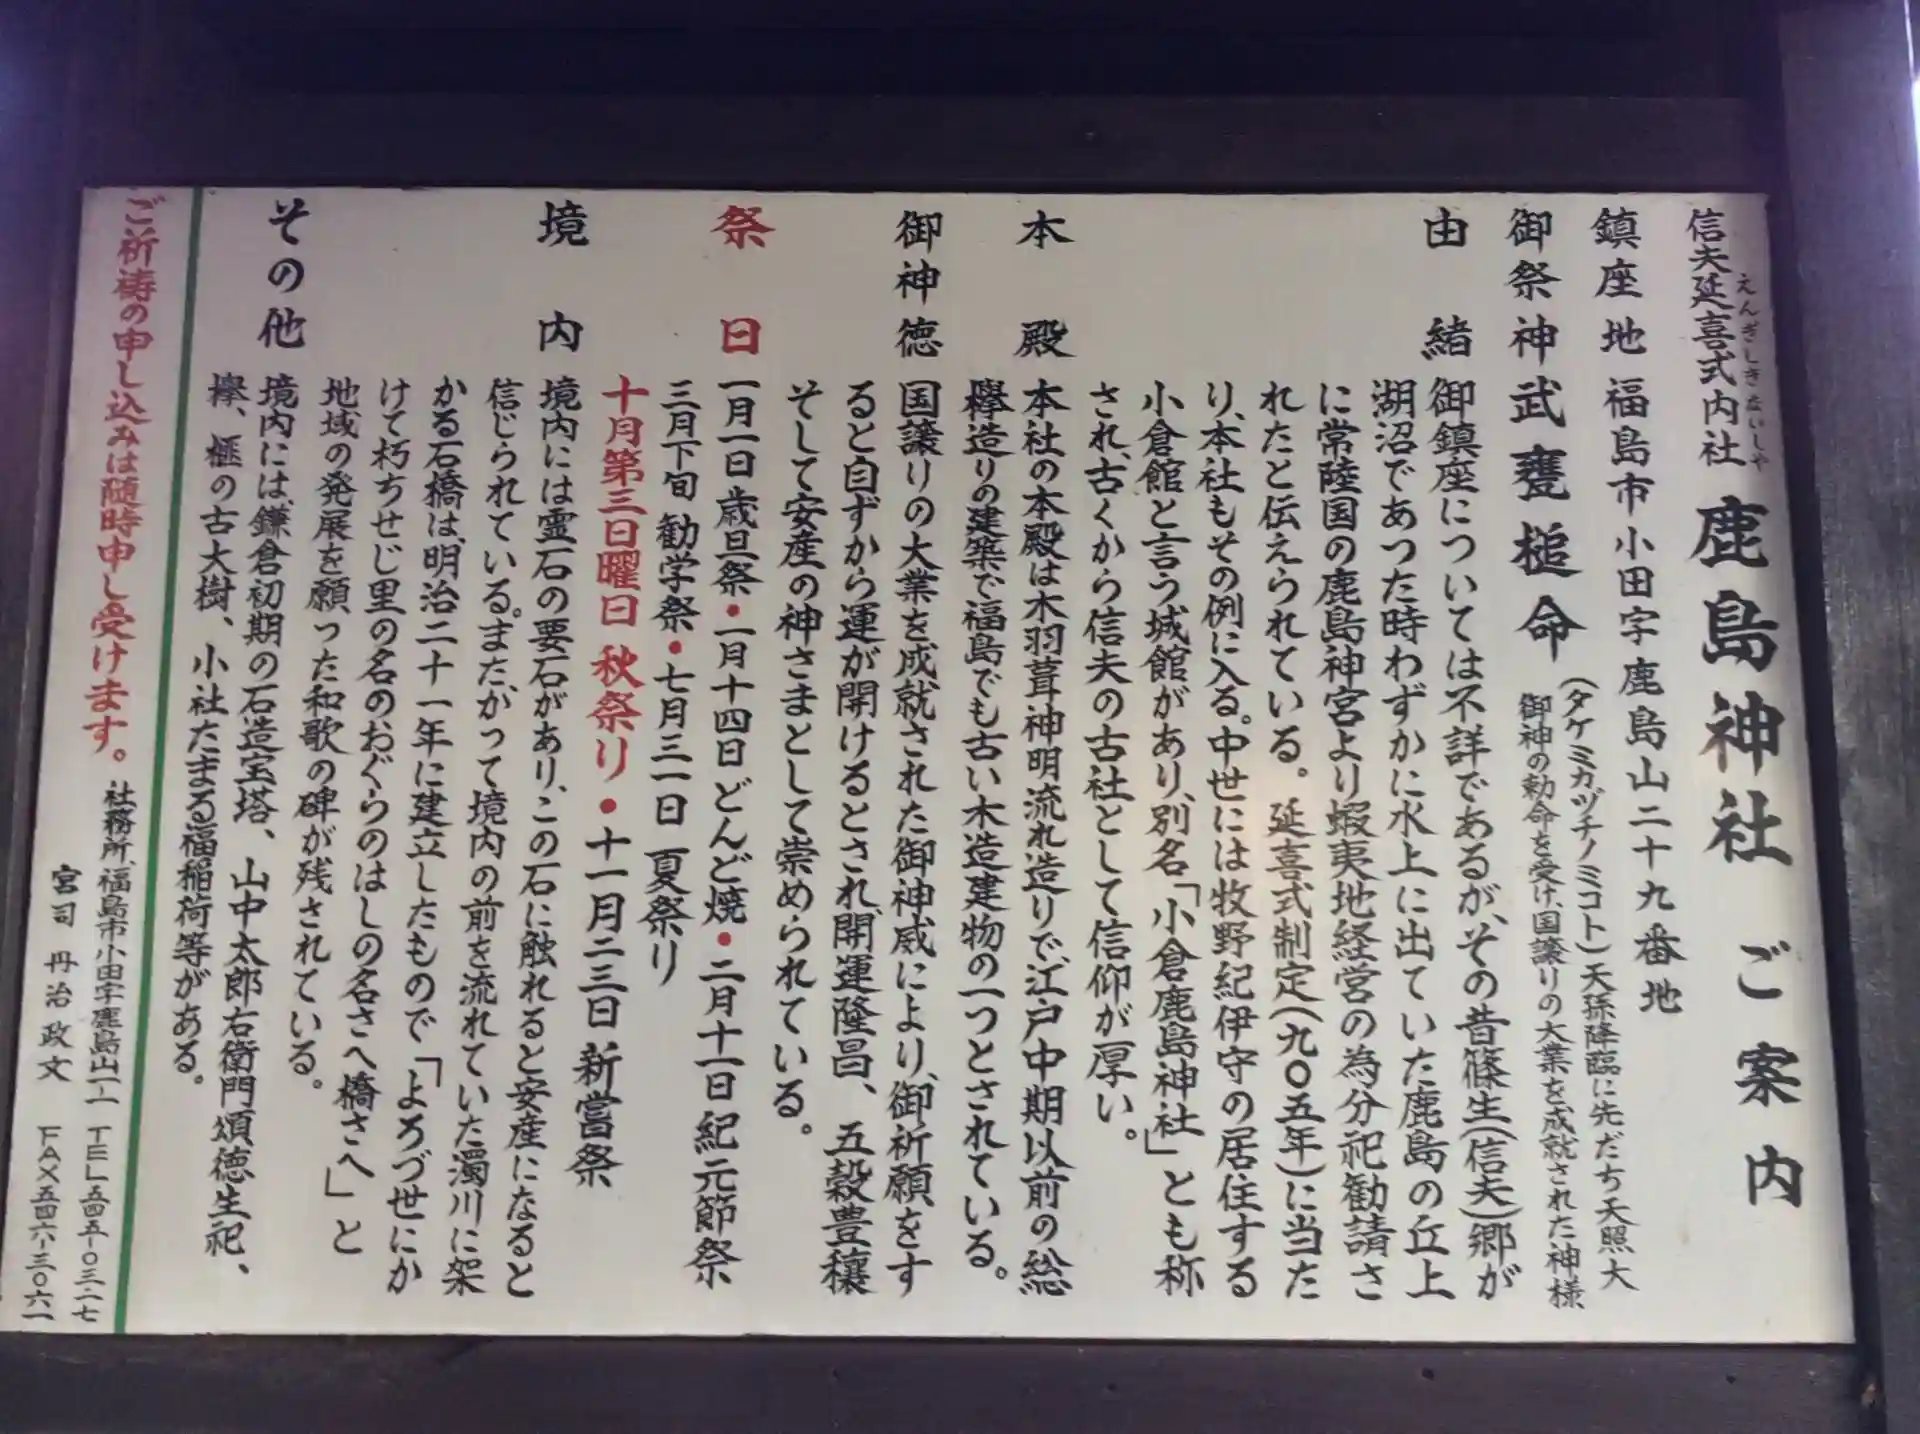 信夫延喜式内社 鹿島神社 ご案内
えんぎしきないしゃ
鎮座地 福島市小田字鹿島山二十九番地
御祭神 武甕槌命 (タケミカヅチノミコト)天孫降臨に先だち天照大
御神の勅命を受け、国譲りの大業を成就された神様
由緒 御鎮座については不詳であるが、その昔篠生(信夫)郷が
湖沼であつた時わずかに水上に出ていた鹿島の丘上
に常陸国の鹿島神宮より蝦夷地経営の為分祀勧請さ
れたと伝えられている。延喜式制定(九〇五年)に当た
り、本社もその例に入る。中世には牧野紀伊守の居住する
小倉館と言う城館があり、別名「小倉鹿島神社」とも称
され、古くから信夫の古社として信仰が厚い。
本殿 本社の本殿は木羽葺神明流れ造りで、江戸中期以前の総
欅造りの建築で福島でも古い木造建物の一つとされている。
御神徳 国譲りの大業を成就された御神威により、御祈願をす
ると自ずから運が開けるとされ、開運隆昌、五穀豊穣
そして安産の神さまとして崇められている。
祭日 一月一日歳旦祭・一月十四日どんど焼・二月十一日紀元節祭
三月下旬 勧学祭・七月三一日 夏祭り
十月第三日曜日 秋祭り・十一月二三日 新嘗祭
境内 境内には霊石の要石があり、この石に触れると安産になると
信じられている。また、かつて境内の前を流れていた濁川に架
かる石橋は、明治二十一年に建立したもので「よろづ世にか
けて朽ちせじ里の名のおぐらのはしの名さへ橋さへ」と
地域の発展を願った和歌の碑が残されている。
その他 境内には、鎌倉初期の石造宝塔、山中太郎右衛門頌徳生祀、
欅、榧の古大樹、小社たまる福稲荷等がある。
ご祈祷の申し込みは随時申し受けます。 社務所、福島市小田字鹿島山一ー一 TEL五四五ー〇三二七
宮司 丹治政文 FAX五四六ー三〇六一